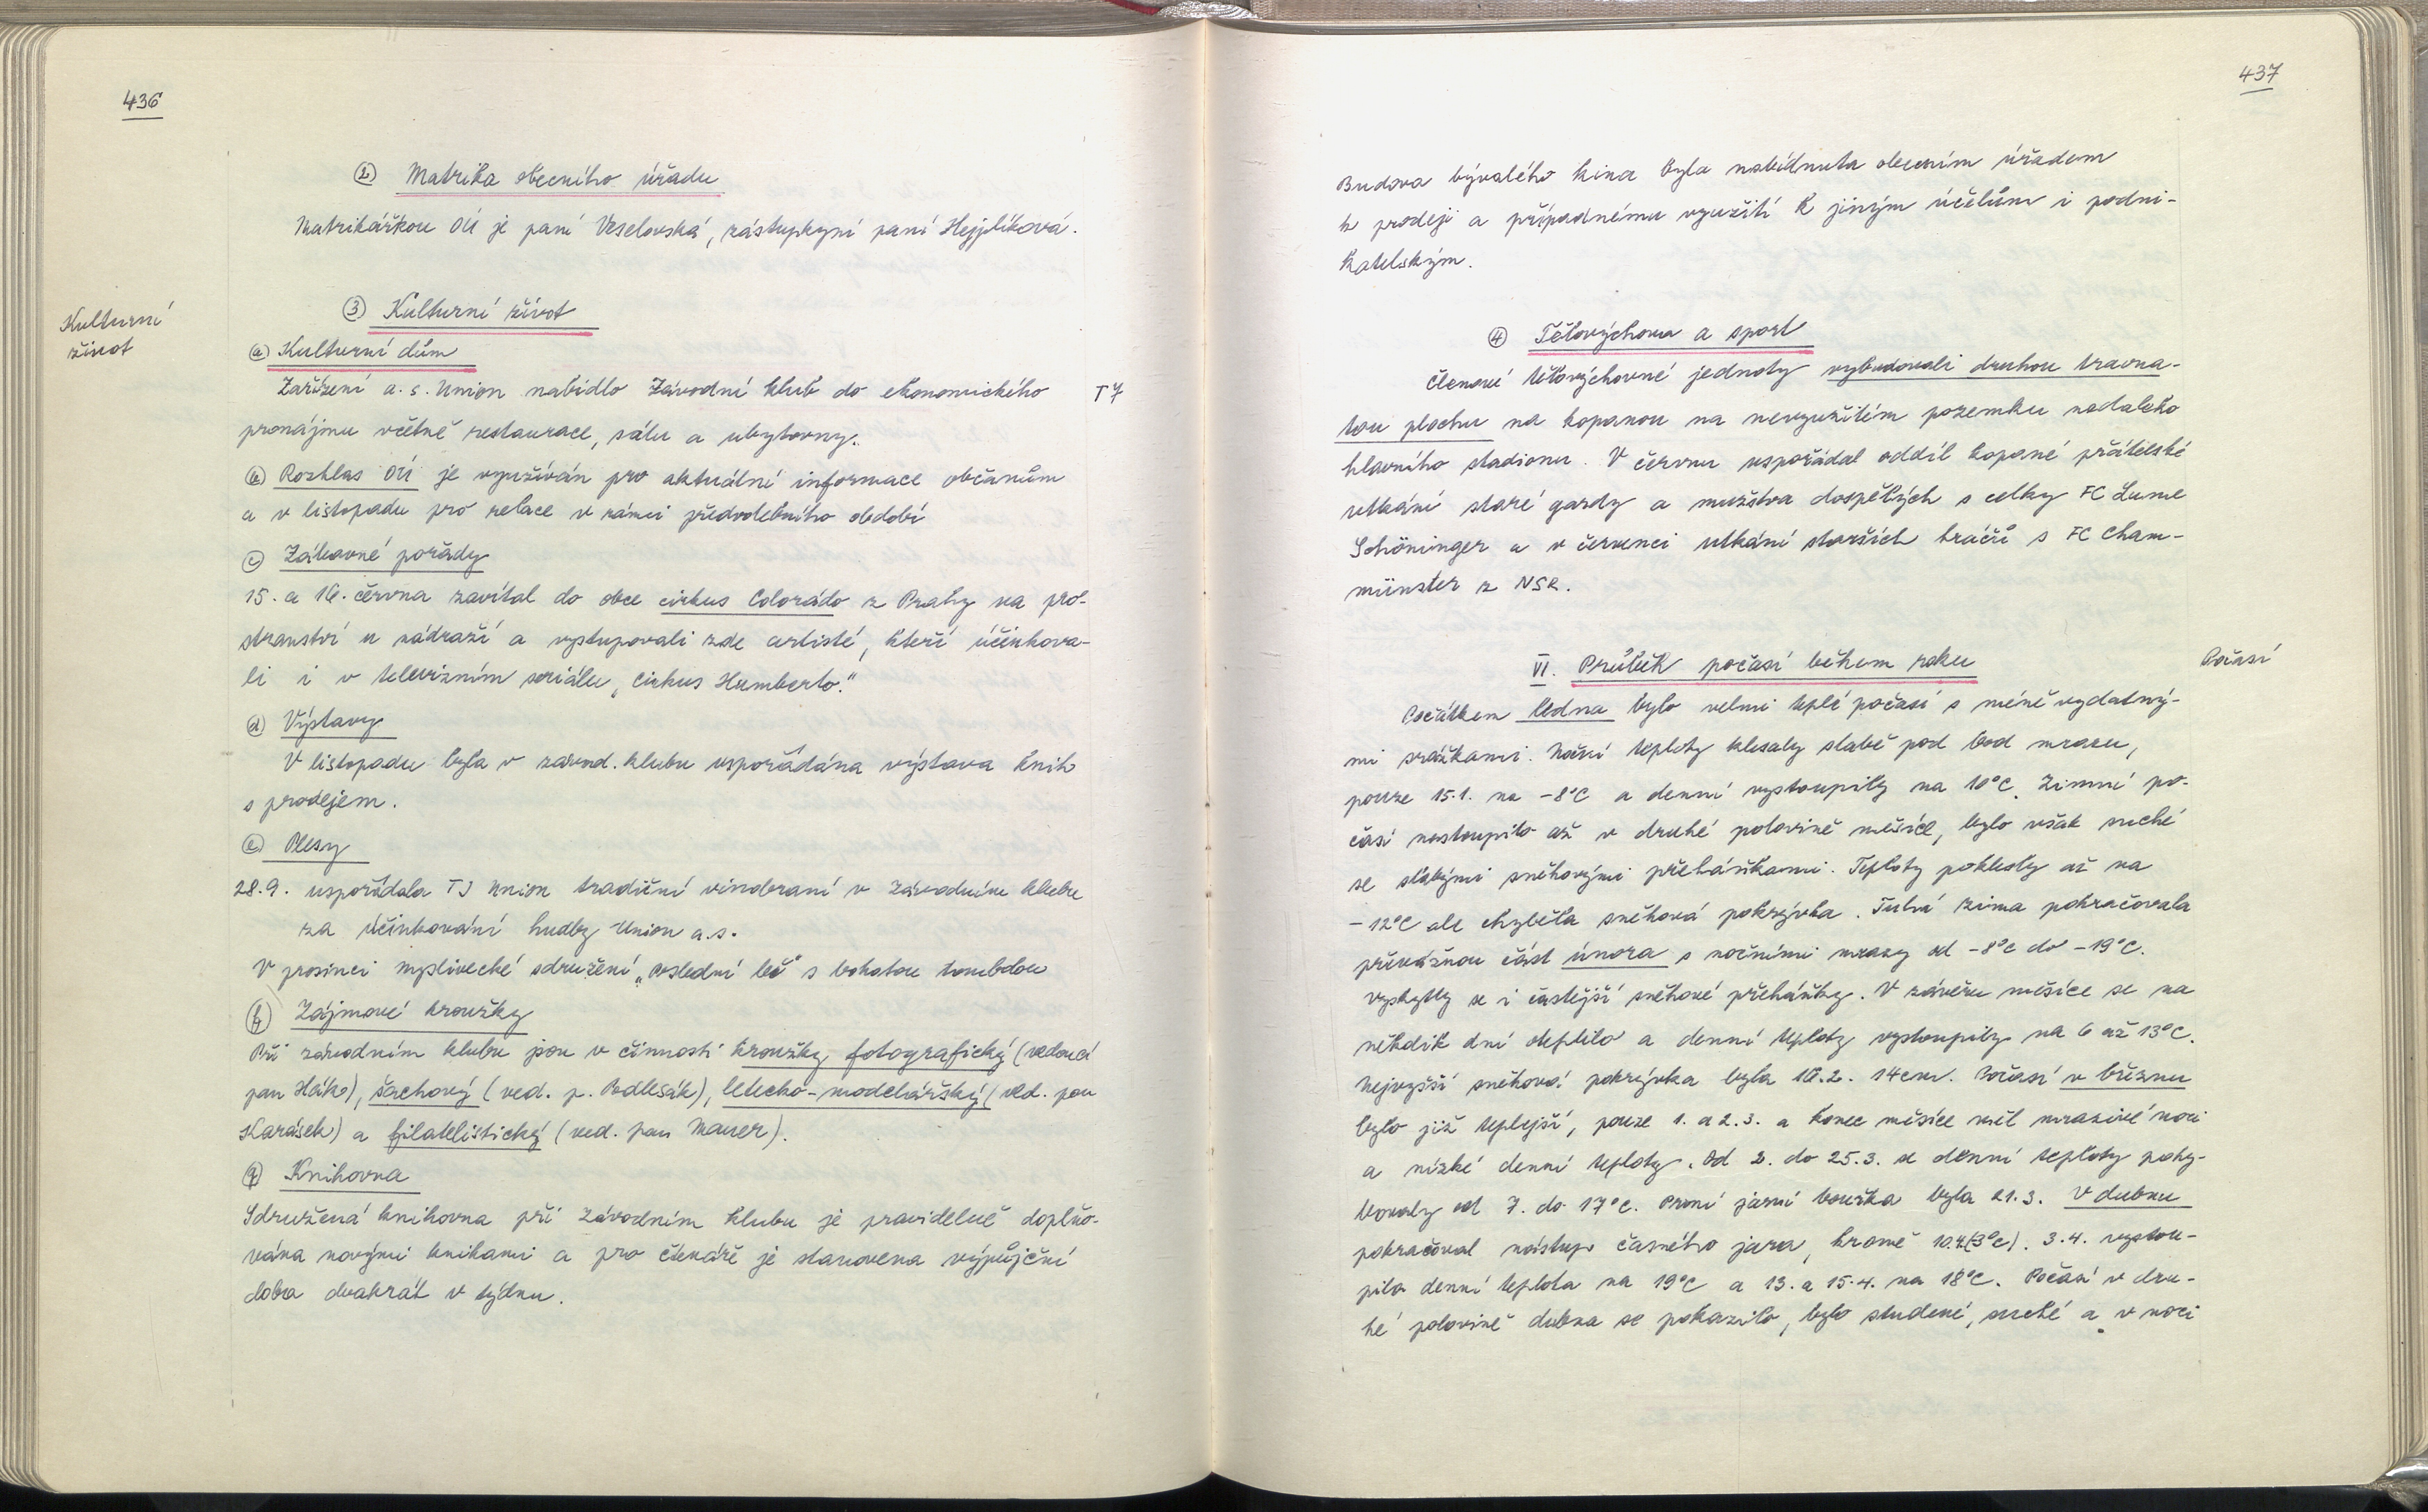 436
② Matrika obecního úřadu
Matrikářkou OÚ je paní Veselovská, zástupkyní paní Hejplíková.
Kulturní
život
③ Kulturní život
ⓐ Kulturní dům
Zařízení a.s. Union nabídlo Závodní klub do ekonomického T7
pronájmu včetně restaurace, sálu a ubytovny.
ⓑ Rozhlas OÚ je využíván pro aktuální informace občanům
a v listopadu pro relace v rámci předvolebního období
ⓒ Zábavné pořady
15. a 16. června zavítal do obce cirkus Colorádo z Prahy na pro-
stranství u nádraží a vystupovali zde artisté, kteří účinkova-
li i v televizním seriálu „Cirkus Humberto."
ⓓ Výstavy
V listopadu byla v závod. klubu uspořádána výstava knih
s prodejem.
ⓔ Plesy
28.9. uspořádala TJ Union tradiční vinobraní v Závodním klubu
za účinkování hudby Union a.s.
V prosinci myslivecké sdružení „Poslední leč" s bohatou tombolou
ⓕ Zájmové kroužky
Při závodním klubu jsou v činnosti kroužky fotografický (vedoucí
pan Hák), šachový (ved. p. Podlešák), letecko-modelářský (ved. pan
Karásek) a filatelistický (ved. pan Mauer).
ⓖ Knihovna
Sdružená knihovna při Závodním klubu je pravidelně doplňo-
vána novými knihami a pro čtenáře je stanovena výpůjční
doba dvakrát v týdnu.
437
Budova bývalého kina byla nabídnuta obecním úřadem
k prodeji a případnému využití k jiným účelům i podni-
katelským.
④ Tělovýchova a sport
Členové tělovýchovné jednoty vybudovali druhou travna-
tou plochu na kopanou na nevyužitém pozemku nedaleko
hlavního stadionu. V červnu uspořádal oddíl kopané přátelské
utkání staré gardy a mužstva dospělých s celky FC Lume
Schöninger a v červenci utkání starších hráčů s FC Cham-
münster z NSR.
VI. Průběh počasí během roku
Počasí
Počátkem ledna bylo velmi teplé počasí s méně vydatný-
mi srážkami. Noční teploty klesaly slabě pod bod mrazu,
pouze 15.1. na -8°C a denní vystoupily na 10°C. Zimní po-
časí nastoupilo až v druhé polovině měsíce, bylo však suché
se slabými sněhovými přeháňkami. Teploty poklesly až na
-12°C ale chyběla sněhová pokrývka. Tuhá zima pokračovala
převážnou část února s nočními mrazy od -8°C do -19°C.
Vyskytly se i častější sněhové přeháňky. V závěru měsíce se na
několik dní oteplilo a denní teploty vystoupily na 6 až 13°C.
Nejvyšší sněhová pokrývka byla 16.2. 14cm. Počasí v březnu
bylo již teplejší, pouze 1. a 2.3. a konec měsíce měl mrazivé noci
a nízké denní teploty. Od 2. do 25.3. se denní teploty pohy-
bovaly od 7. do 17°C. První jarní bouřka byla 21.3. V dubnu
pokračoval nástup časného jara, kromě 10.4.(3°C). 3.4. vystou-
pila denní teplota na 19°C a 13. a 15.4. na 18°C. Počasí v dru-
hé polovině dubna se pokazilo, bylo studené, suché a v noci